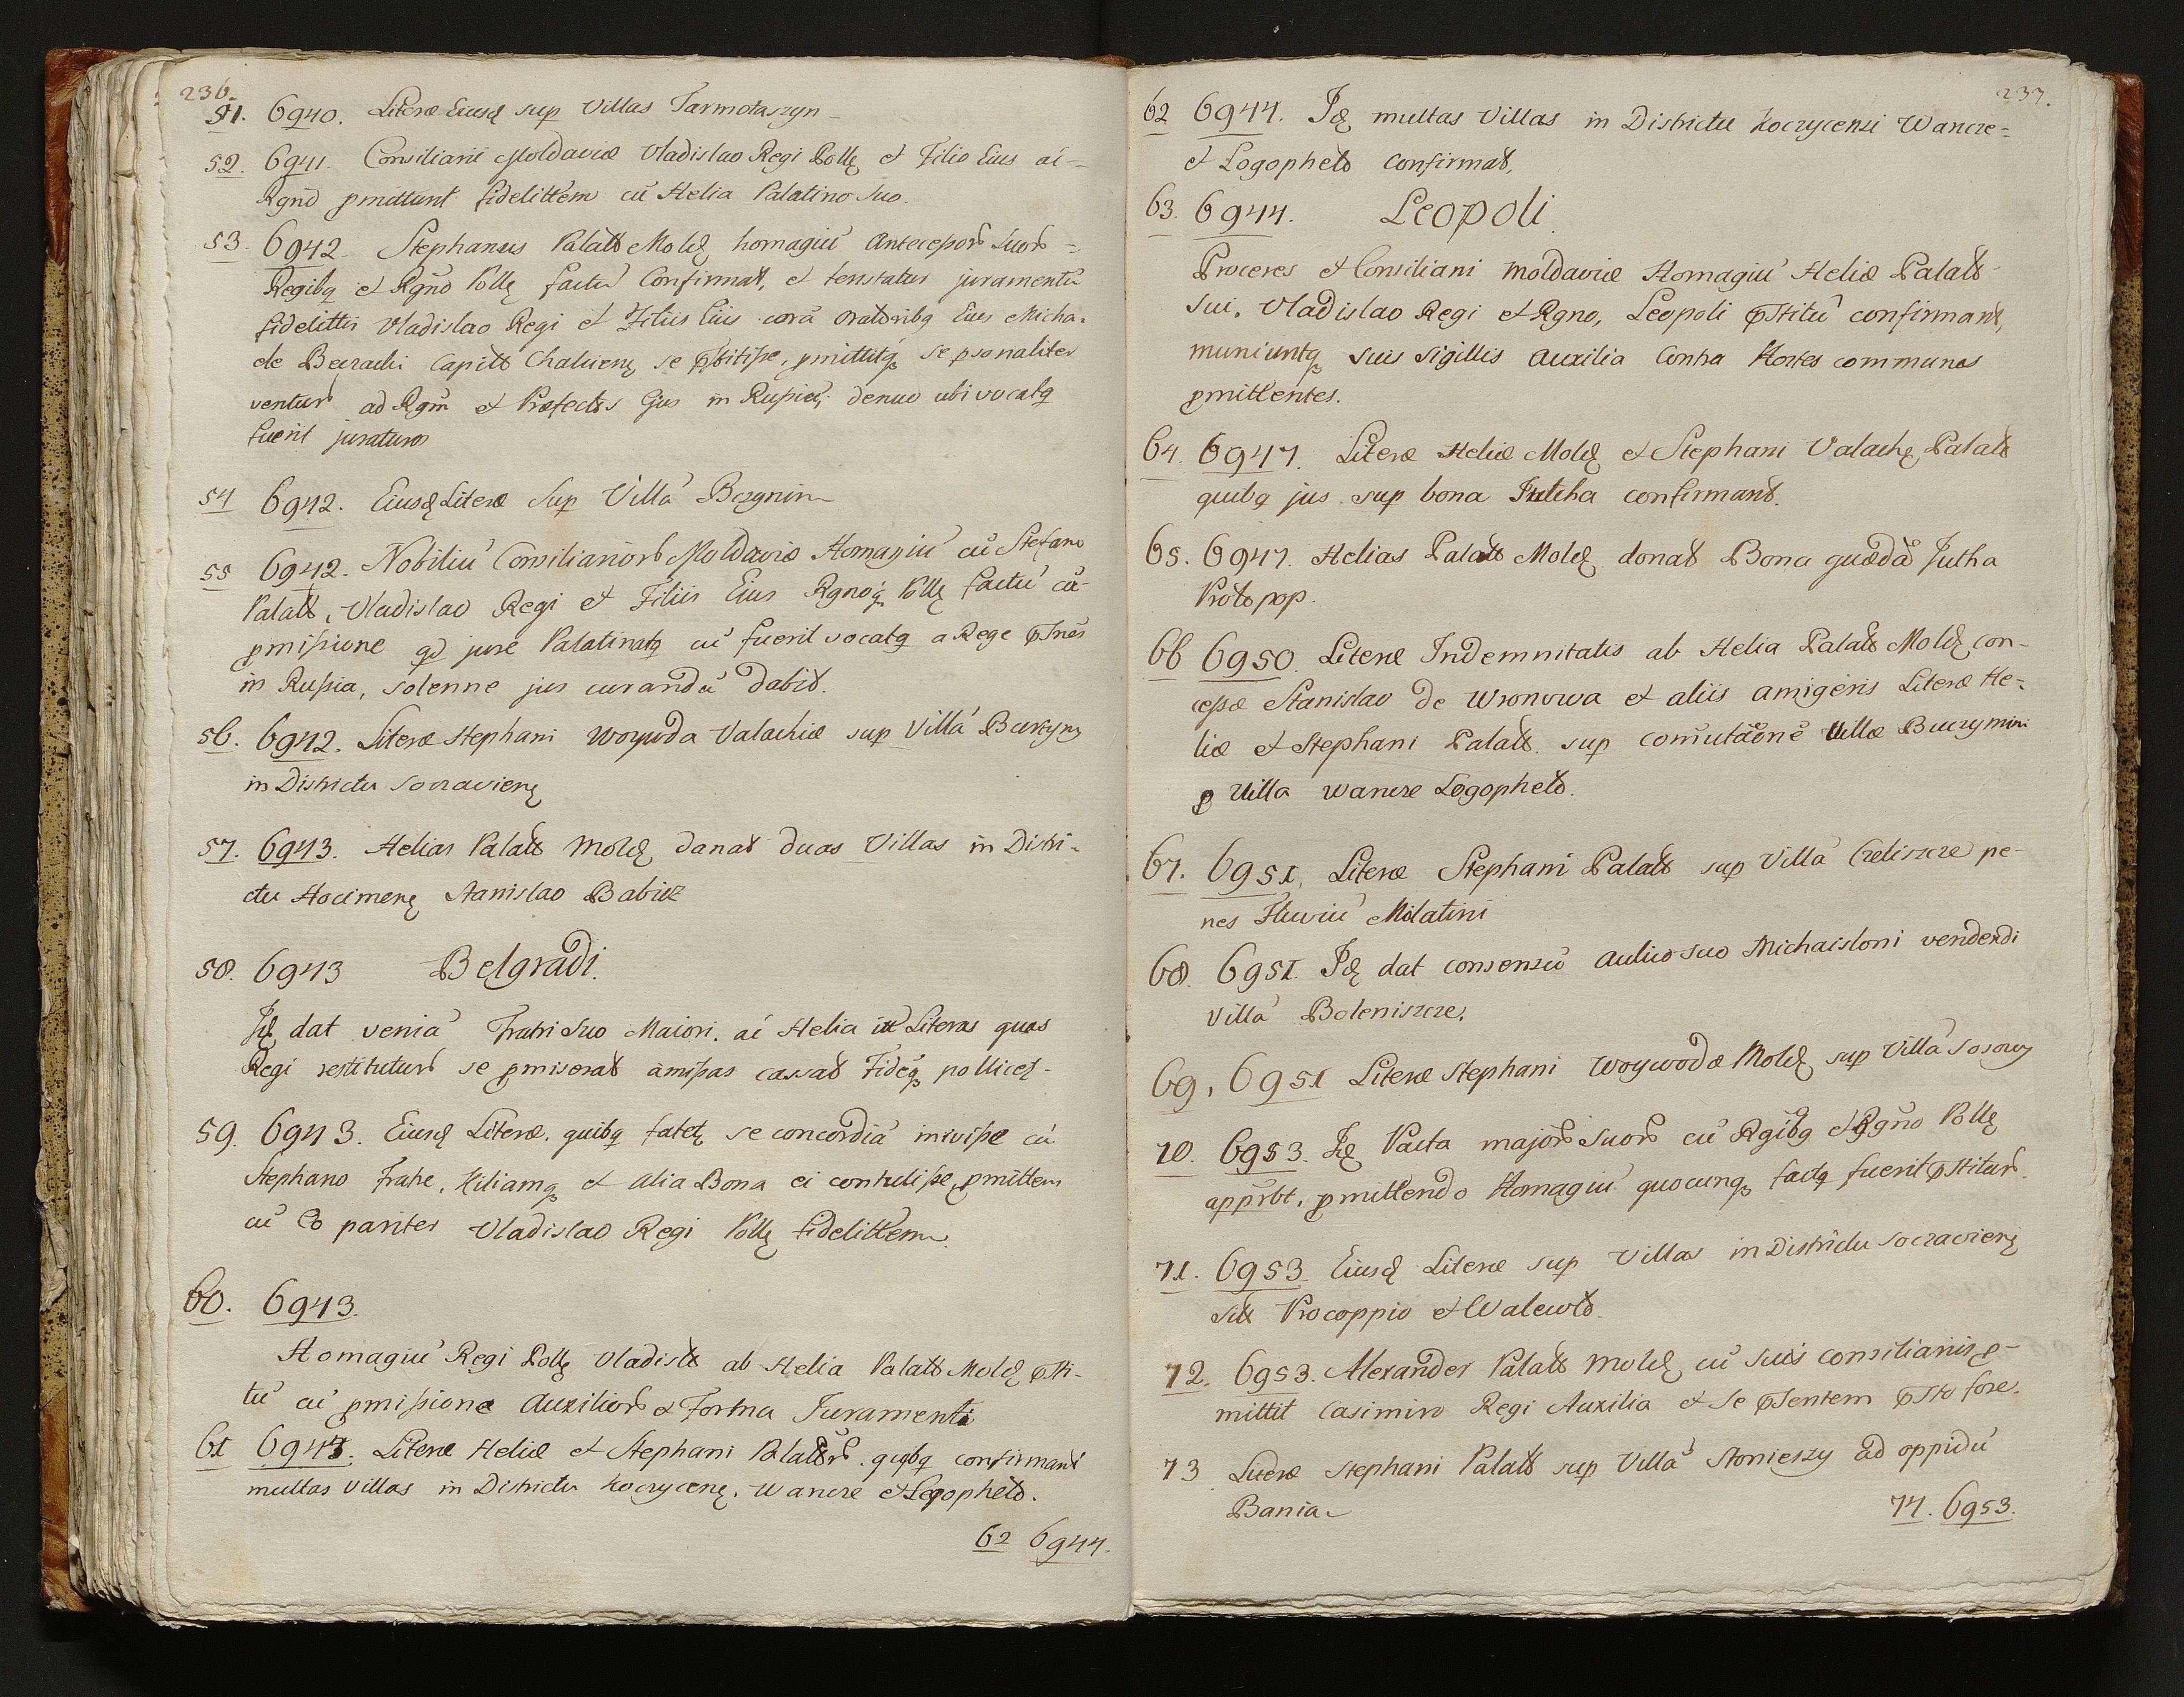 236.
51. 6940. Literæ Eiusq sup Villas Jarmotaszyn
52. 6941. Consiliarii Moldaviæ Vladislao Regi Pollę et Filio Eius ai
Rgno pmittunt fidelittem cū Helia Palatino suo.
53. 6942. Stephanus Palatt Mold homagiū
Regibq et Rgno Pollę factū Confirmat, et juramentū
fidelittis Vladislao Regi et Filiis Eius corā Eius Micha-
ele Capitt se pmittitq se psonaliter
ad Rgm et Præfectos Ejus in Rußiā, denuo ubi vocatq
fuerit juraturo
54 6942. Eiusq Literæ sup Villā
55 6942. Nobiliū Consiliarior Moldaviæ Homagiū cū Stefano
Palatt, Vladislao Regi et Filiis Eius Rgnoq Pollę factū cū
pmißione qd jure Palatinatq cū fuerit vocatq a Rege
in Rußia, solenne jus curandū dabit.
56. 6942. Literæ Stephani Woywoda Valachiæ sup Villā
in Districtu Soczavienę
57. 6943. Helias Palatt Mold danat duas Villas in Distri-
ctu Hocimenę Stanislao Babicz
58. 6943 Belgradi.
Id dat veniā Fratri Suo Maiori. ai Helia Literas quas
Regi restituturū se pmiserat amißas cassat Fideq pollicet-
59. 6943. Eiusq Literæ, quibq fatetę se concordiā inivißæ cū
Stephano Fratre, Kiliamq et alia Bona ei contulißæ, pmittem
cū Eo pariter Vladislao Regi Pollę fidelittem.
60. 6943.
Homagiū Regi Pollę Vladisla ab Helia Palatt Mold psti-
tū cū pmißione Auxilior et Forma Juramenti
61 6944. Literæ Heliæ et Stephani Palattor quibq confirmant
multas Villas in Districtu Koczycenę. Wancze et Logopheto.
62 6944.
237.
62 6944. Id multas Villas in Districtu Koczycensi Wancze=
et Logopheto confirmat,
63. 6944. Leopoli.
Proceres et Consiliarii Moldaviæ Homagiū Heliæ Palatt
Sui, Vladislao Regi et Rgno, Leopoli pstitū confirmant,
muniuntq suis Sigillis Auxilia Contra Hostes communes
pmittentes.
64. 6947. Literæ Heliæ Mold et Stephani Valachę Palatt
quibq jus sup bona Jutcha confirmant.
65. 6947. Helias Palatt Mold donat Bona quædā Jutha
Protopop.
66 6950. Literæ Indemnitatis ab Helia Palatt Mold con-
ceßæ Stanislao de Wronowa et aliis amigeris Literæ He-
liæ et Stephani Palatt. sup comutāone Villæ Buczymin
p Villa Wancze Logopheto.
67. 6951. Literæ Stephani Palatt sup Villā Czeliszcze pe-
nes Fluviū Milatini
68. 6951. Id dat consensū Aulico suo Michaisloni vendendi
Villā Boleniszcze.
69. 6951 Literæ Stephani Woywodæ Mold sup Villā Sosowy
70. 6953. Id Pacta major suor cū Rgibq et Rgno Pollę
approbt, pmittendo Homagiū quocunq factq fuerit pstitur
71. 6953 Eiusq Literæ sup Villas in Districtu Soczavienę
sitt Procoppio et Walewto
72. 6953. Alexander Palatt Mold cū suis consiliariis p-
mittit Casimiro Regi Auxilia et Se psentem psto fore.
73 Literæ Stephani Palatt sup Villā Stonieszy ad oppidū
Bania
74. 6953.